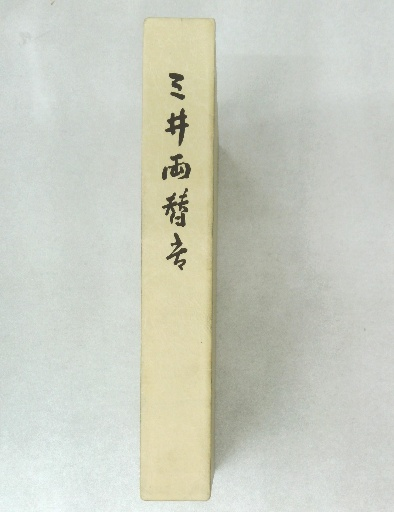 三井両替店